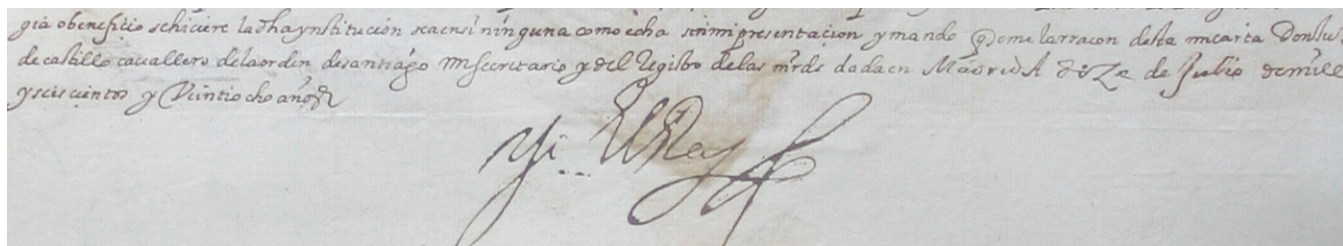 gia o beneficio se hiciere la dha ynstitucion sea en si ninguna como echa sin mi presentacion y mando q tome la rracon desta mi carta Don
de castillo cavallero de la orden de santiago mi secretario y del Registro de las mrds dada en Madrid A diZe de Julio de mill
y seis cientos y Veintiocho años
Yo El Rey